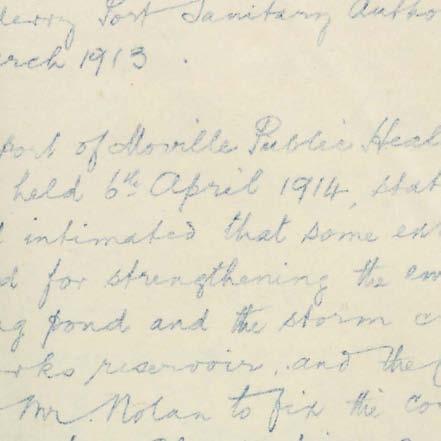 derry Port Sanitary Autho
arch 1913.
port of Moville Public Heal
held 6th April 1914, stat
intimated that some ex
d for strengthening the em
ng pond and the storm
orks reservoir, and the
Mr. Nolan to fix the co